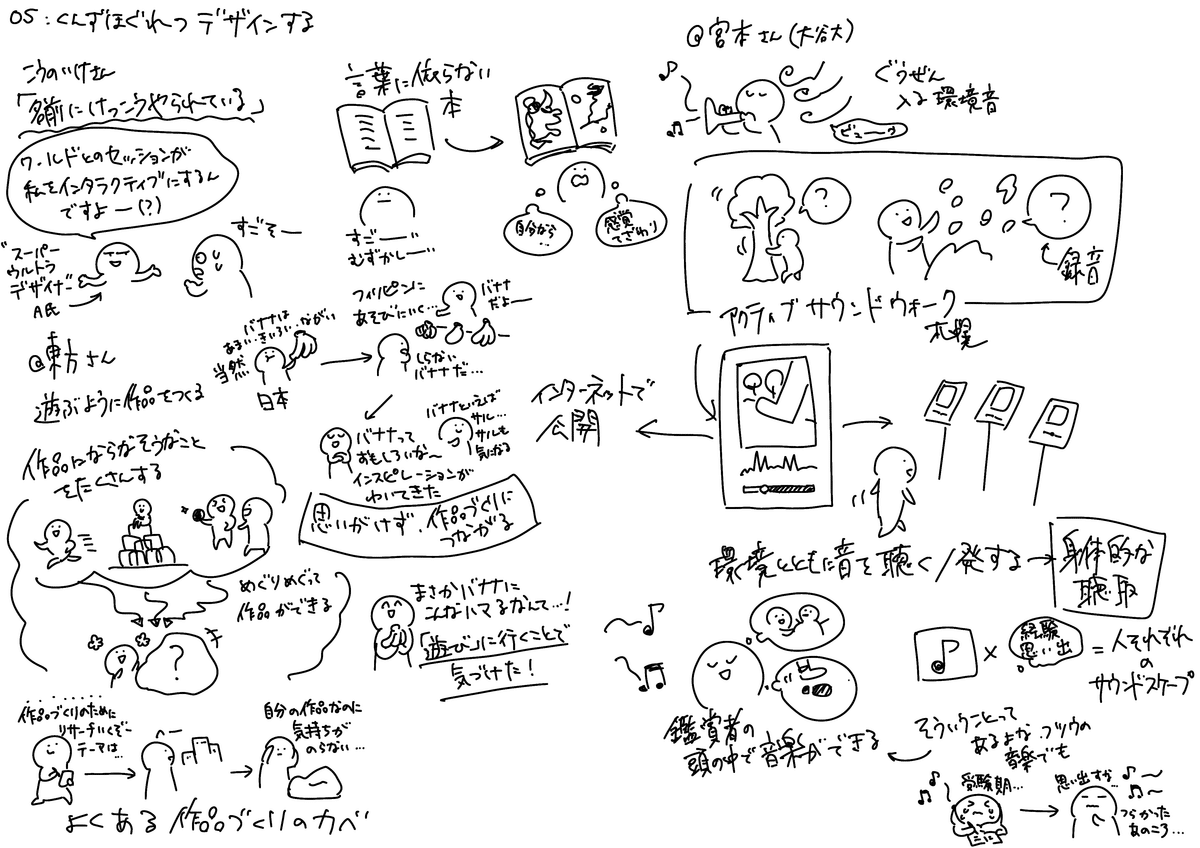 05:くんずほぐれつデザインする
こうのいけさん
「名前にけっこうやられている」
ワールドとのセッションが
私をインタラクティブにするん
ですよー(?)
すごそー
"スーパー
ウルトラ
デザイナー"
A氏
@東方さん
遊ぶように作品をつくる
作品にならなそうなこと
をたくさんする
めぐりめぐって
作品ができる
?
作品づくりのために
リサーチいくぞー
テーマは…
自分の作品なのに
気持ちが
のらない…
よくある作品づくりのカベ
言葉に依らない
本
すごーーい
むずかしーー
自分から…
感覚
でさわり
バナナは
あまい・きいろい・ながい
当然
日本
フィリピンに
あそびにいく…
バナナ
だよー
しらない
バナナだ…
バナナって
おもしろいなー
インスピレーションが
わいてきた
バナナといえば
サル…
サルも
気になる
思いがけず、作品づくりに
つながる
まさかバナナに
こんなハマるなんて…!
「遊び」に行くことで
気づけた!
@宮本さん(大谷大)
ぐうぜん
入る環境音
ビューーッ
?
?
録音
アクティブサウンドウォーク
札幌
インターネットで
公開
環境とともに音を聴く/発する→身体的な
聴取
♪×経験
思い出=人それぞれ
の
サウンドスケープ
鑑賞者の
頭の中で音楽ができる
そういうことって
あるよな、フツウの
音楽でも
受験期…
思い出すな…
つらかった
あのころ…